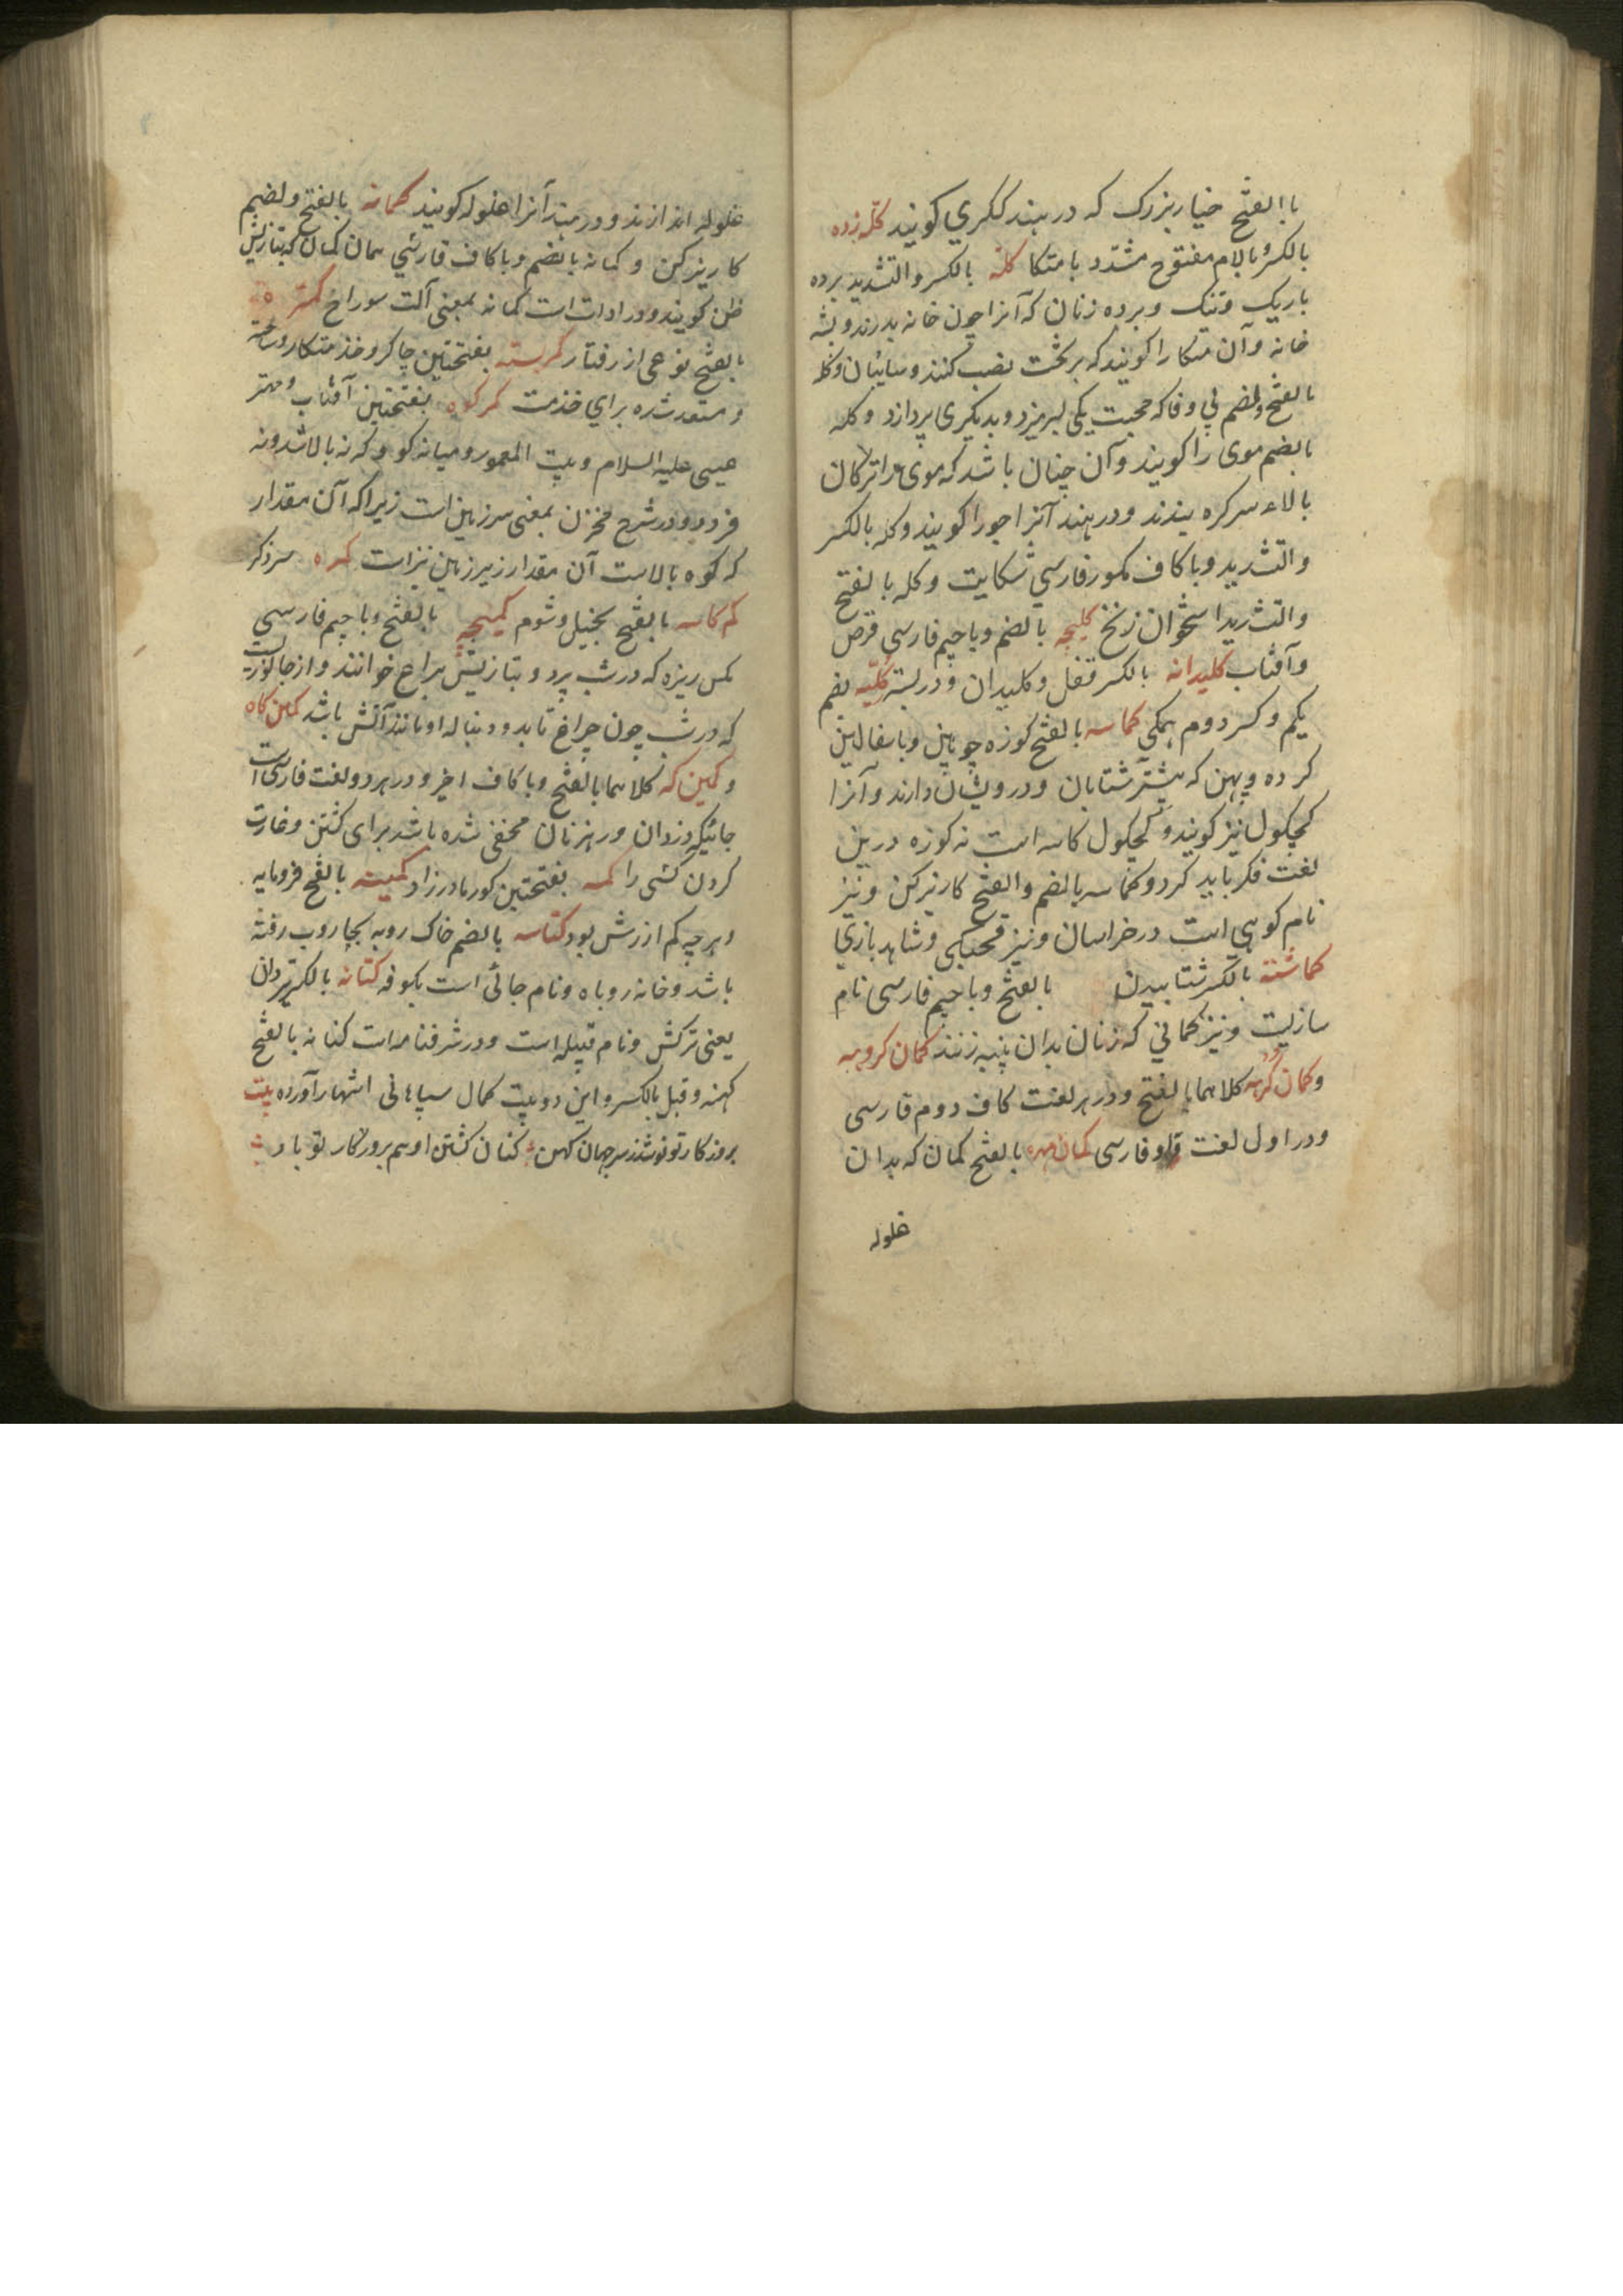 باالفتح خیار بزرک که در هند ککری کویند کله زده
بالکسر بالام مفتوح مشدد بامتکا کله بالکسر والتشدید پرده
باریک وتنک وپرده زنان که آنرا چون خانه بدرزند و پشه
خانه وآن متکا را کویند که بر تخت نصب کنند وسائبان وکله
بالفتح ولضم بی وفا که محبت یکی لبریزد وبدیکری پردازد وکله
بالضم موی را کویند وآن چنان باشد که موی را ترکان
بالاء سر کره بندند ودر هند آنرا جورا کویند وکله بالکسر
والتشدید وباکاف مکسور فارسی شکایت وکله بالفتح
والتشدید استخوان زنخ کلیچه بالضم وباجیم فارسی قرص
وآفتاب کلیدانه بالکسر قفل وکلیدان ودربستر کلیه بضم
یکم وکسر دوم همکی کماسه بالفتح کوزه چوبین وباسفالین
کرده وپهن که بیشتر شتابان ودرویشان دارند وآنرا
کچکول نیز کویند وکچکول کاسه است نه کوزه درین
لغت فکر باید کرد وکماسه بالضم والفتح کاریزکن ونیز
نام کوهی است در خراسان ونیز قحبکی وشاهد بازی
کماشته بالکسر شتابیدن بالفتح وباجیم فارسی نام
سازیست ونیز کمانی که زنان بدان پنبه زنند کمان کروهه
وکمان کرهه کلاهما بالفتح ودر هر لغت کاف دوم فارسی
ودر اول لغت واو فارسی کمان مهره بالفتح کمان که بدان
غلوله
غلوله اندازند ودر هند آنرا غلوله کویند کمانه بالفتح ولضم
کاریزکن وکمانه بالضم وباکاف فارسی همان کمان که بتازیش
ظن کویند ودر ادات است کمانه بمعنی آلت سوراخ کمتره
بالفتح نوعی از رفتار کمربسته بفتحتین چاکر وخدمتکار وساخته
ومستعد شده برای خدمت کمرکوه بفتحتین آفتاب ومهتر
عیسی علیه السلام وبیت المعمور ومیانه کوه که نه بالا شد ونه
فرود ودر شرح مخزن بمعنی سرزمین است زیرا که آن مقدار
که کوه بالاست آن مقدار زیر زمین نیز است کمره سرذکر
کم کاسه بالفتح بخیل وشوم کمیچه بالفتح وباجیم فارسی
مکس ریزه که در شب پرد وبتازیش یراع خوانند واز جانوریست
که در شب چون چراغ تابد ودنباله او مانند آتش باشد کمین کاه
وکمین که کلاهما بالفتح وباکاف اخیر ودر هر دو لغت فارسی است
جائیکه دزدان ورهزنان مخفی شده باشد برای کشتن وغارت
کردن کسی را کمه بفتحتین کور مادرزاد کمینه بالفتح فرومایه
وهرچه کم ارزش بود کناسه بالضم خاک روبه بجاروب رفته
باشد وخانه روباه ونام جائی است بکوفه کنانه بالکسر تیردان
یعنی ترکش ونام قبیله است ودر شرفنامه است کنانه بالفتح
کهنه وقبل بالکسر واین دو بیت کمال سپاهانی استشهاد آورده بیت
بروزکار تو نوشد ز سر جهان کهن کنان کشتن او هم بروزکار تو باد